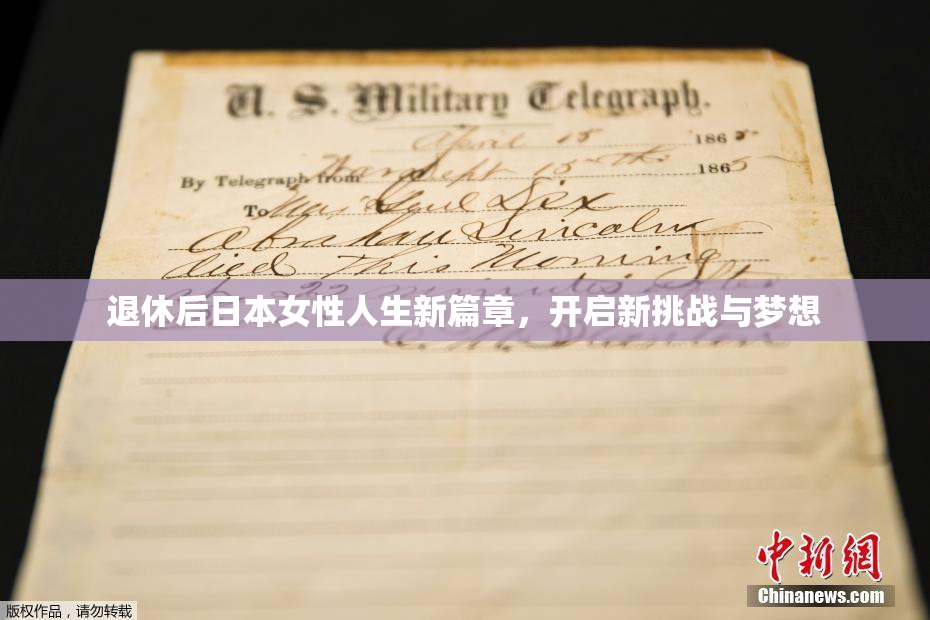 U. S. Military Telegraph.
April 15 1865
By Telegraph from War Dept 15th 1865
To Maj Genl Dix
Abraham Lincoln
died This Morning
at 22 minutes after
退休后日本女性人生新篇章，开启新挑战与梦想
E. M. Stanton
中新网
Chinanews.com
版权作品，请勿转载